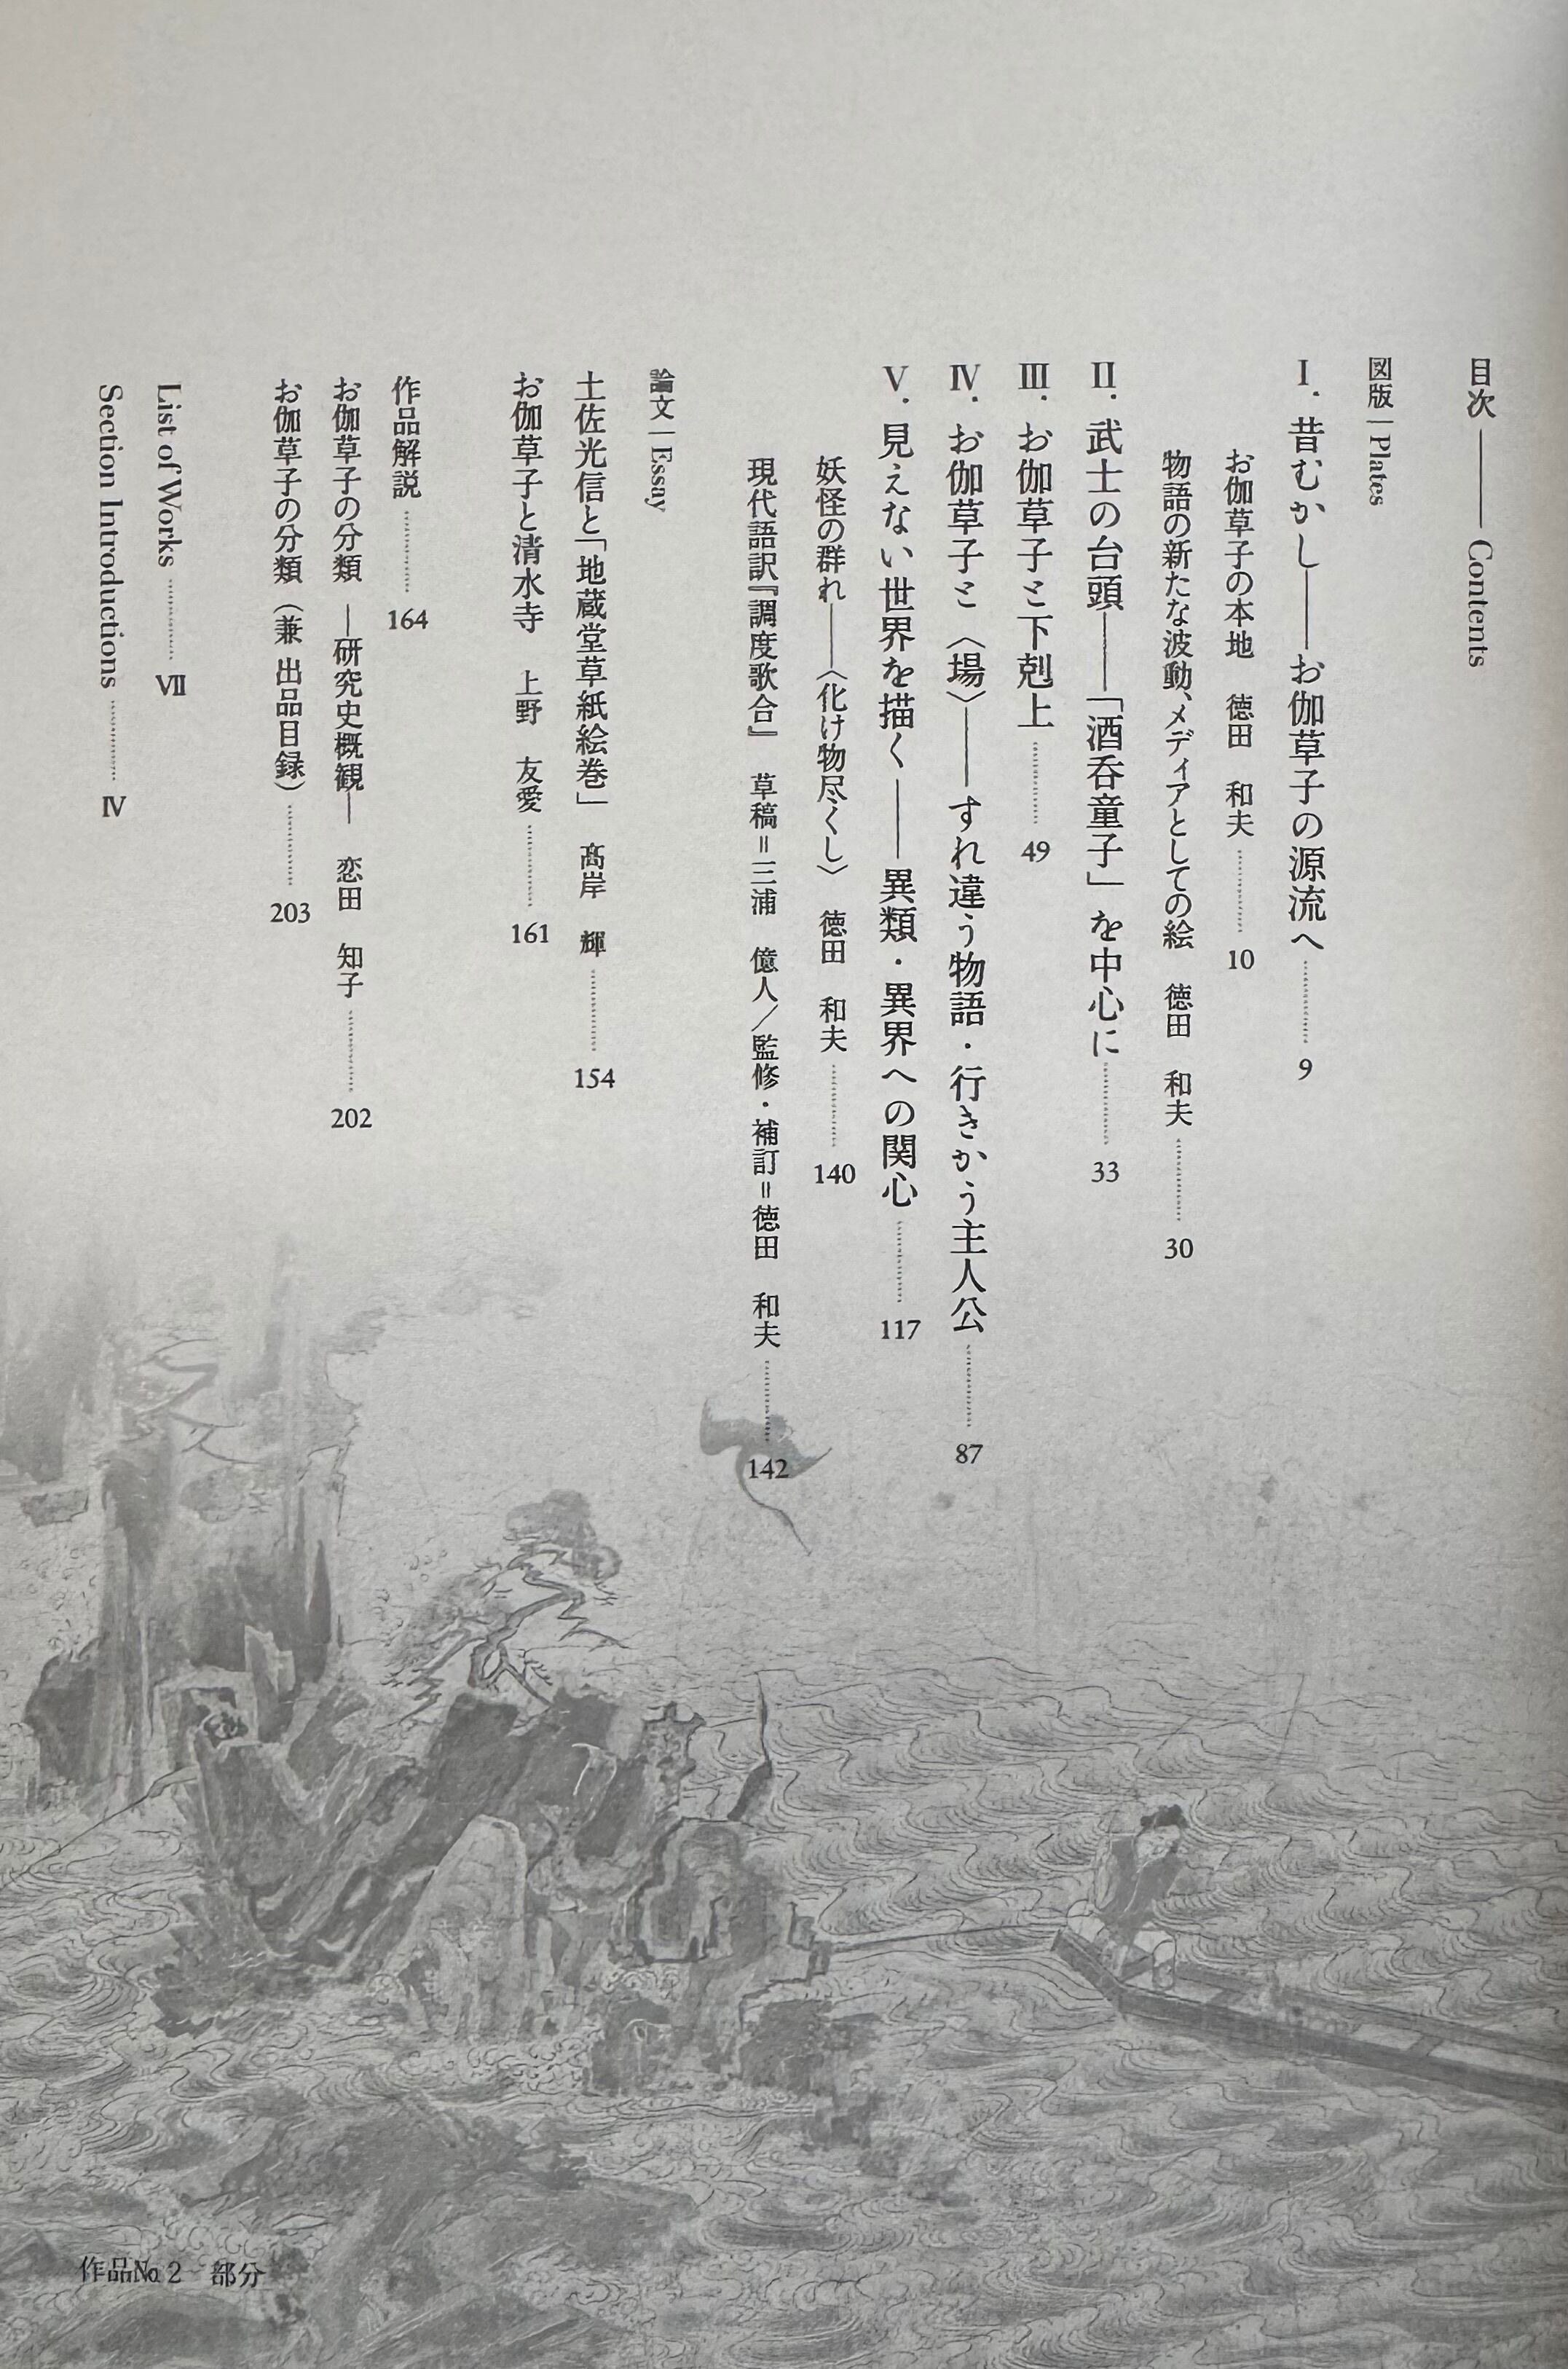 目次 ―― Contents
図版 | Plates
Ⅰ. 昔むかし――お伽草子の源流へ ………… 9
お伽草子の本地 徳田 和夫 ………… 10
物語の新たな波動、メディアとしての絵 徳田 和夫 ………… 30
Ⅱ. 武士の台頭――「酒呑童子」を中心に ………… 33
Ⅲ. お伽草子と下剋上 ………… 49
Ⅳ. お伽草子と〈場〉――すれ違う物語・行きかう主人公 ………… 87
Ⅴ. 見えない世界を描く――異類・異界への関心 ………… 117
妖怪の群れ――〈化け物尽くし〉 徳田 和夫 ………… 140
現代語訳『調度歌合』 草稿=三浦 億人/監修・補訂=徳田 和夫 ………… 142
論文 | Essay
土佐光信と「地蔵堂草紙絵巻」 髙岸 輝 ………… 154
お伽草子と清水寺 上野 友愛 ………… 161
作品解説 ………… 164
お伽草子の分類 ―研究史概観― 恋田 知子 ………… 202
お伽草子の分類(兼 出品目録) ………… 203
List of Works ………… Ⅶ
Section Introductions ………… Ⅳ
作品№2 部分